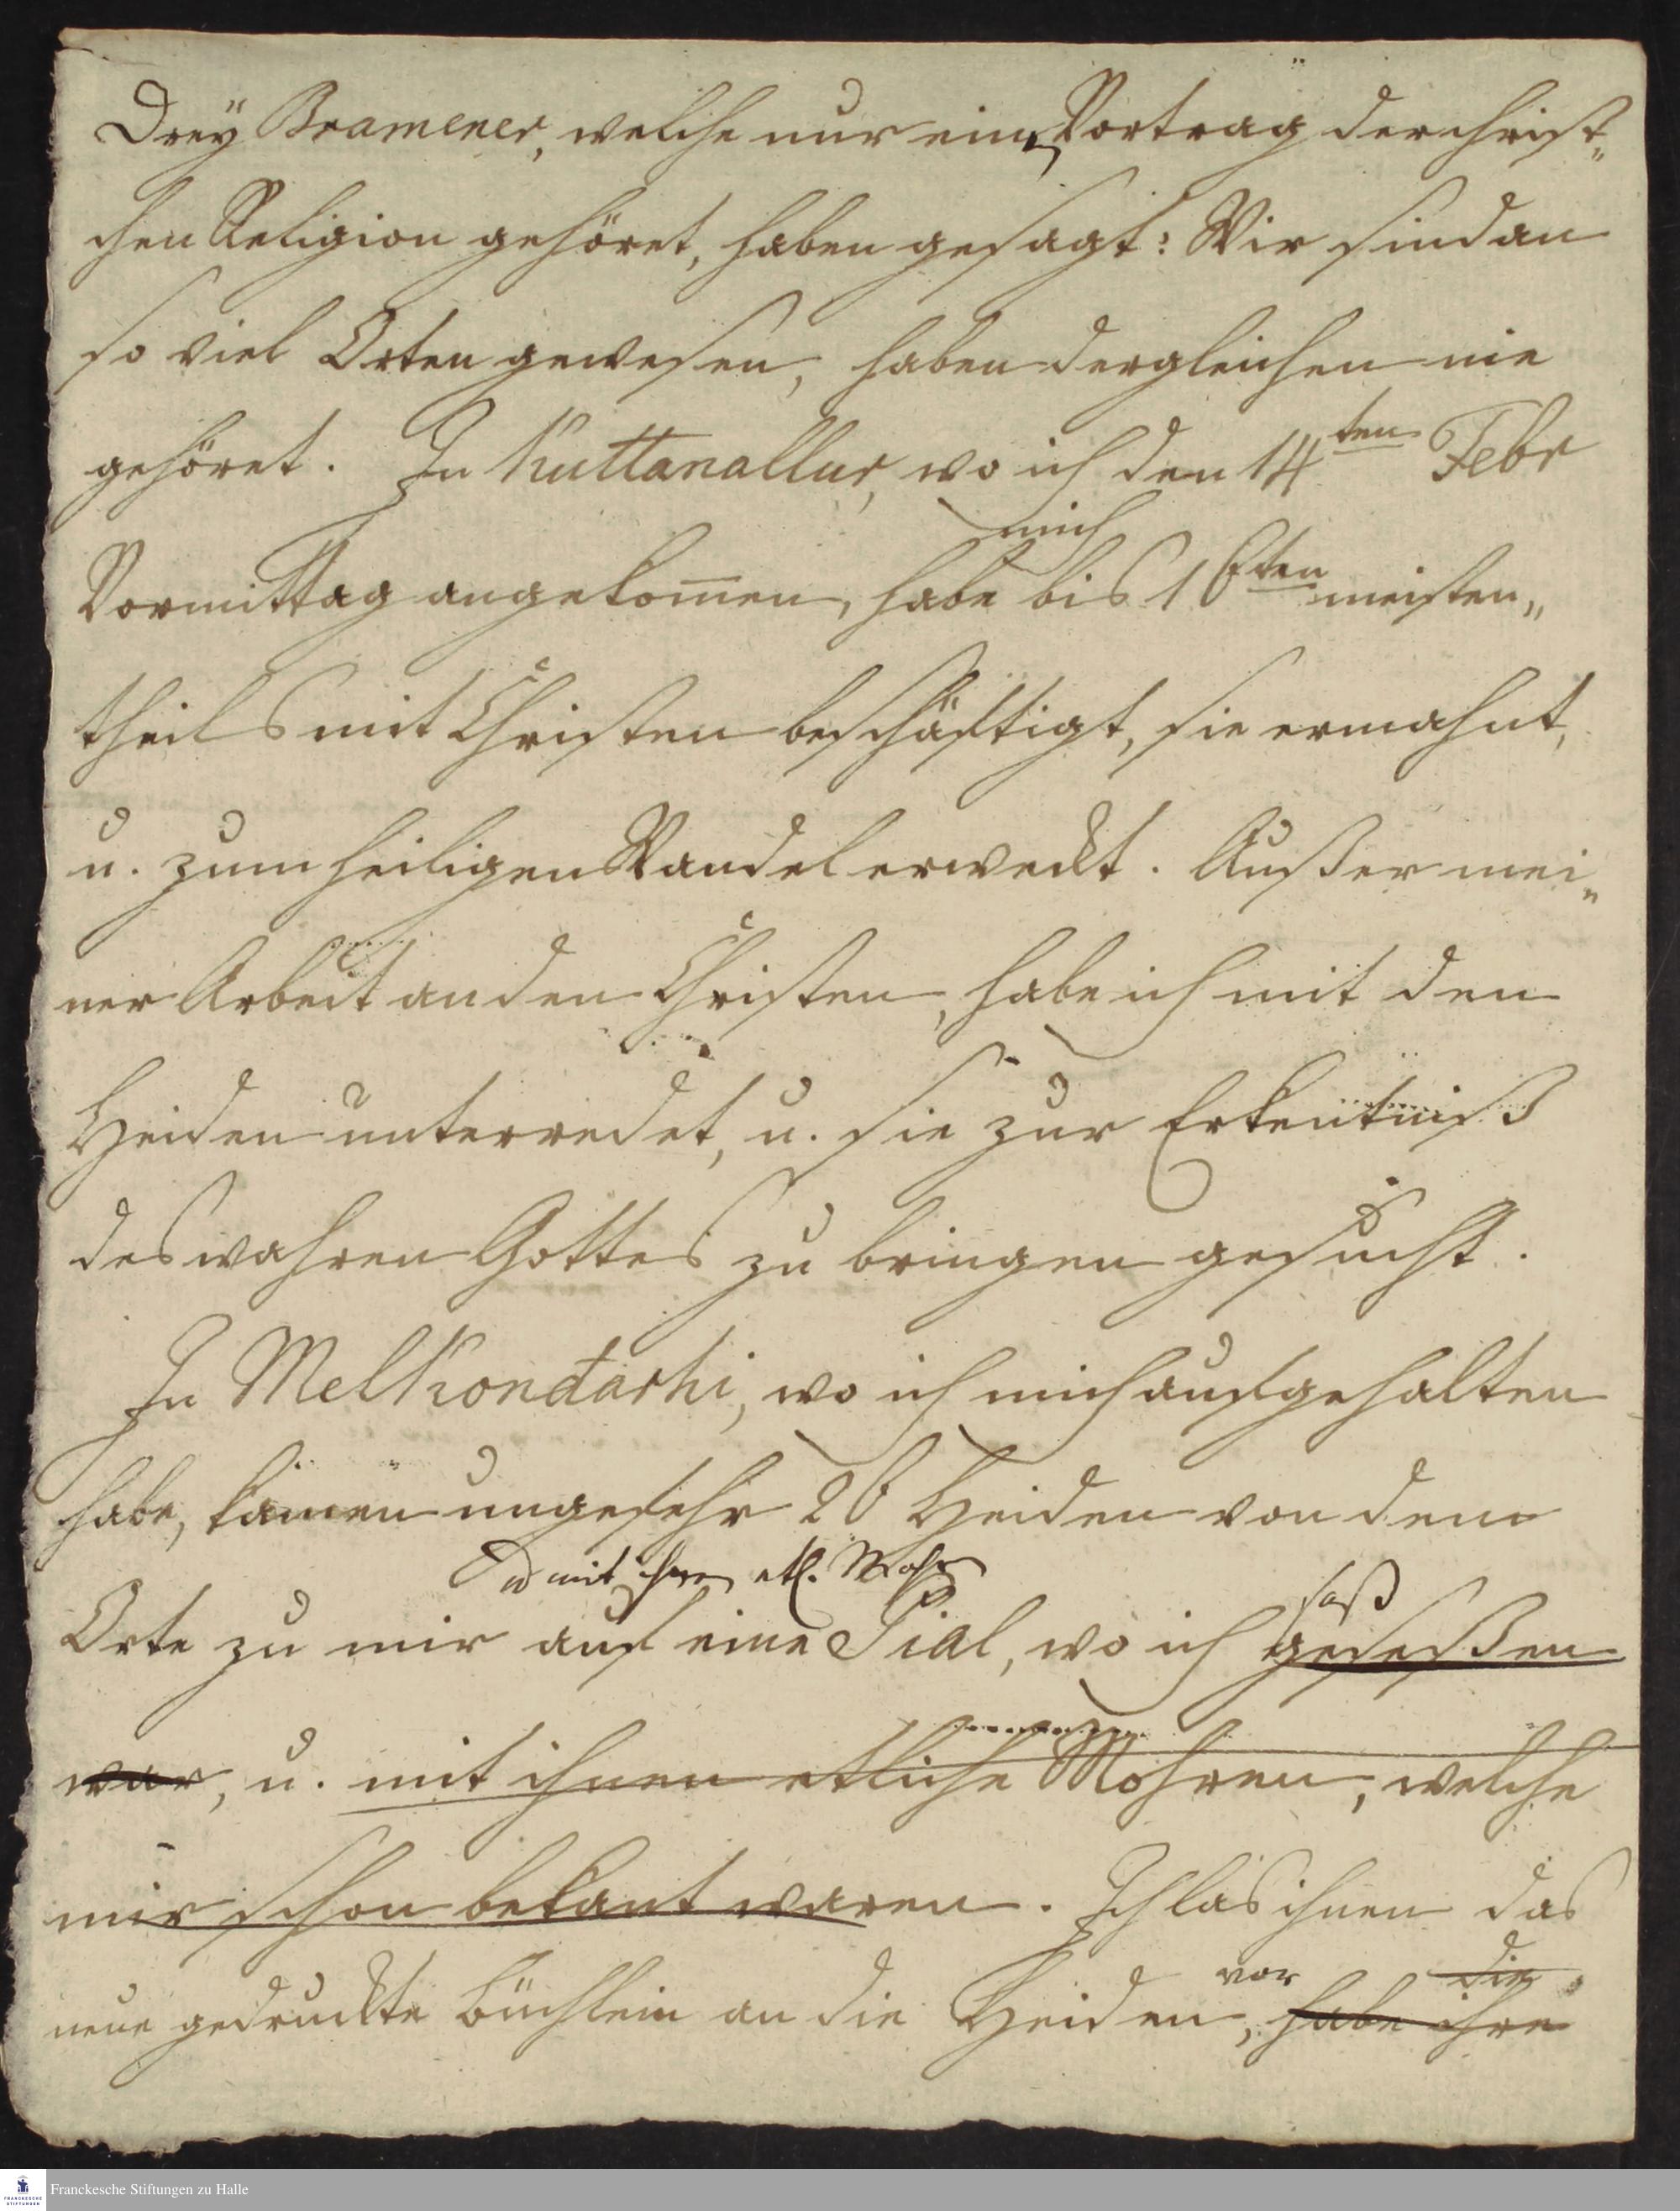 Dreÿ Bramener, welche nur ein Vortrag der christ„
chen Religion gehöret, haben gesagt: Wir sind an
so viel Orten gewesen, haben dergleichen nie
gehöret. In Kuttanallur, wo ich den 14ten Febr
mich
Vormittag angekom̅en, habe bis 16ten meisten„
theils mit Christen beschäftigt, sie ermahnt,
u. zum heiligen Wandel erweckt. Außer mei„
ner Arbeit an den Christen, habe ich mit den
Heiden unterredet, u. sie zur Erkentniß
des wahren Gottes zu bringen gesucht.
In Melkondarhi, wo ich mich aufgehalten
habe, kamen ungefehr 26 Heiden von dem
u mit ihnen etl. Mohren
saß
Orte zu mir auf eine Pial, wo ich geseßen
war, u. mit ihnen etliche Mohren, welche
mir schon bekant waren. Ich las ihnen das
vor die
neue gedruckte Büchlein an die Heiden, habe ihre
Franckesche Stiftungen zu Halle
FRANCKESCHE
STIFTUNGEN